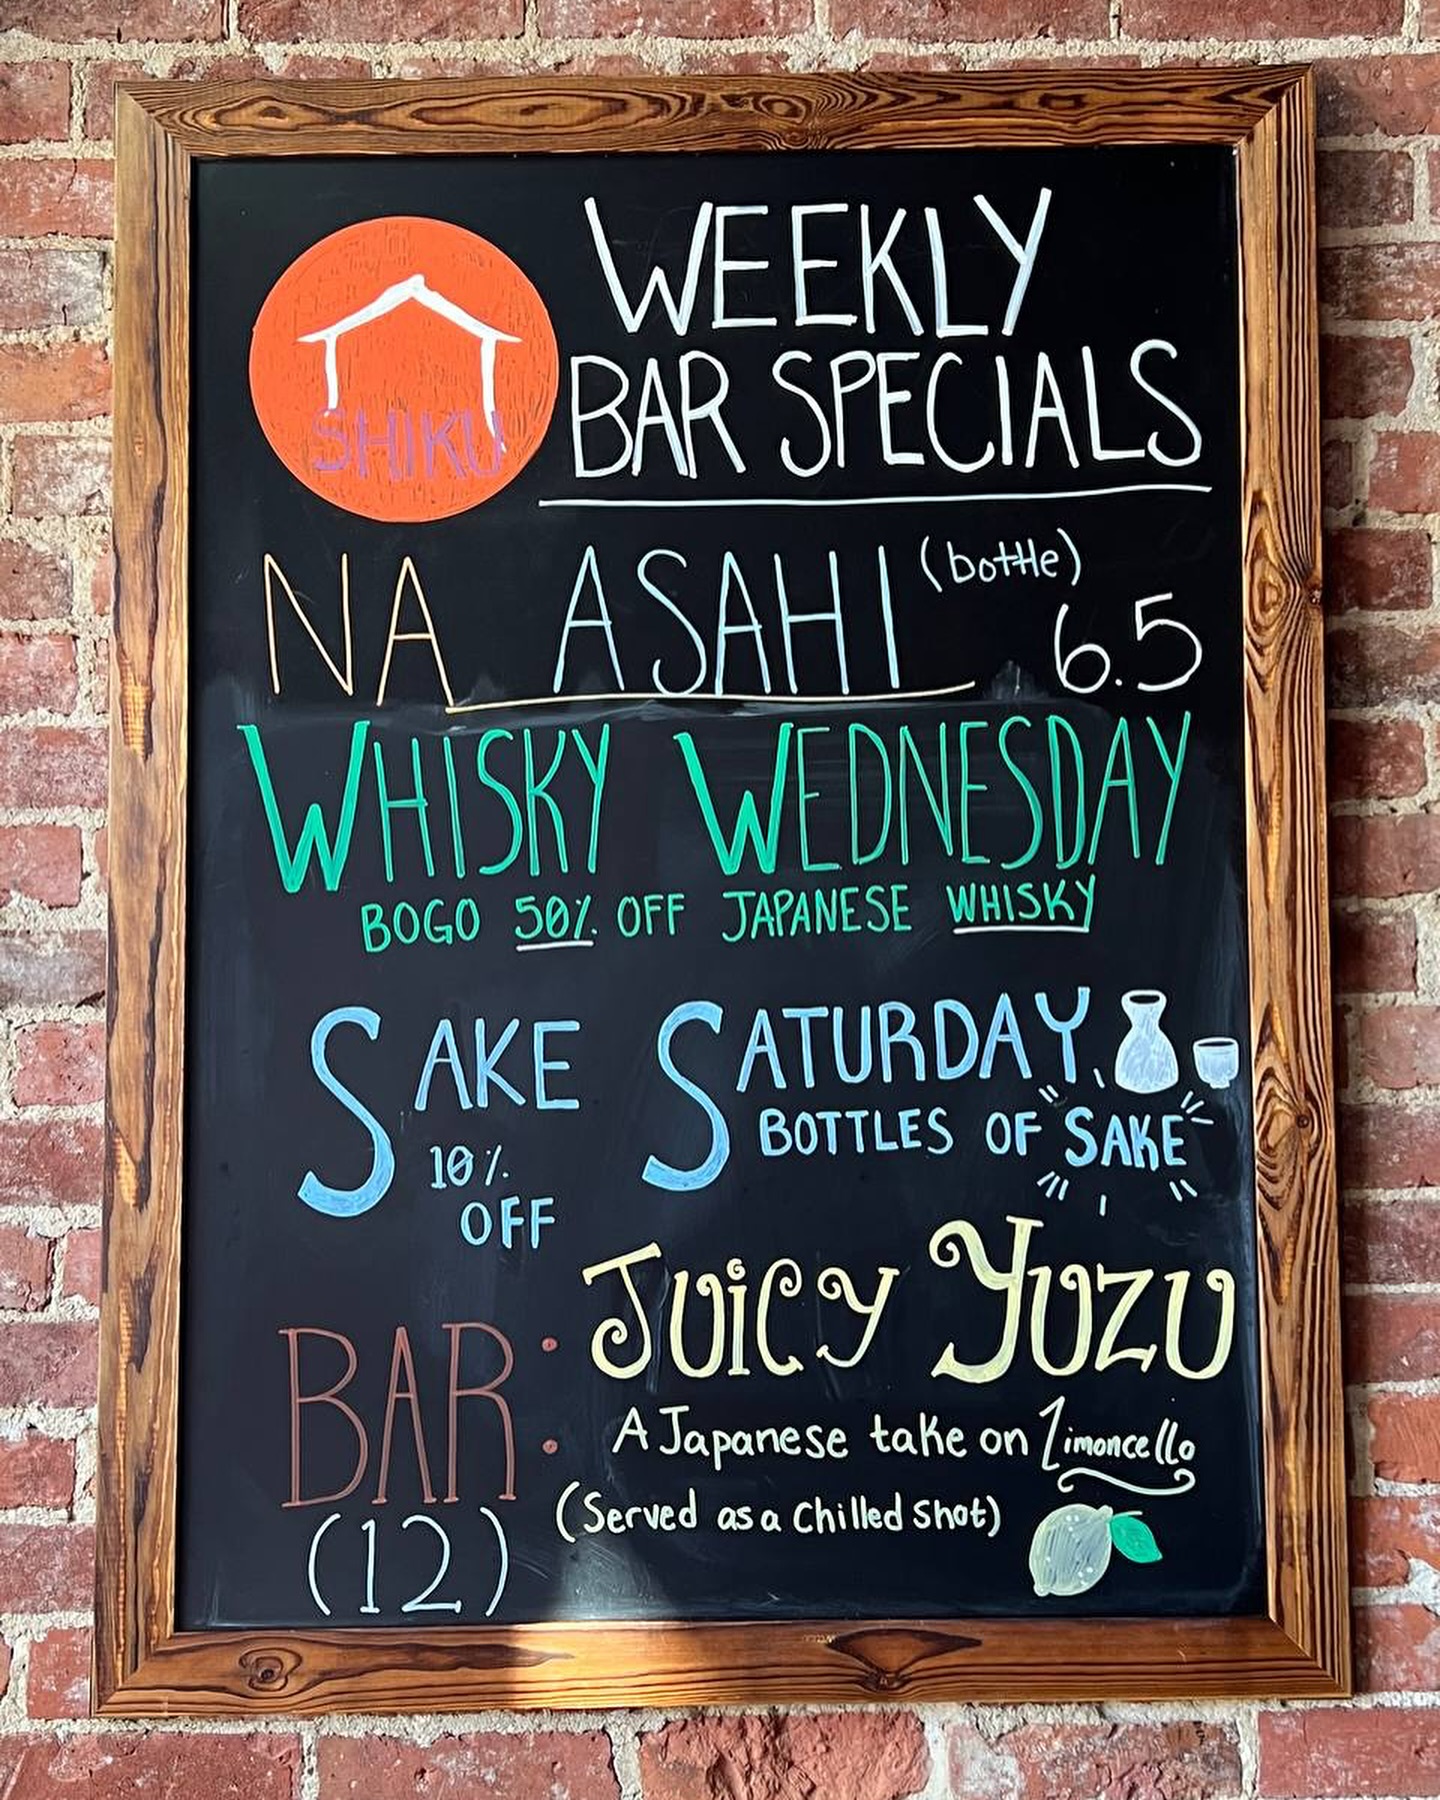 WEEKLY
BAR SPECIALS
SHIKU
NA ASAHI (bottle) 6.5
WHISKY WEDNESDAY
BOGO 50% OFF JAPANESE WHISKY
SAKE SATURDAY
10% OFF
BOTTLES OF SAKE
BAR: JUICY YUZU
(12)
A Japanese take on Limoncello
(Served as a chilled shot)